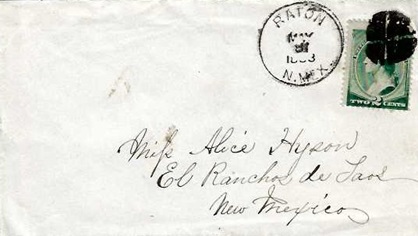 RATON
MAY
1883
N. MEX.
2
TWO CENTS
Miss Alice Hyson
El Ranchos de Taos
New Mexico